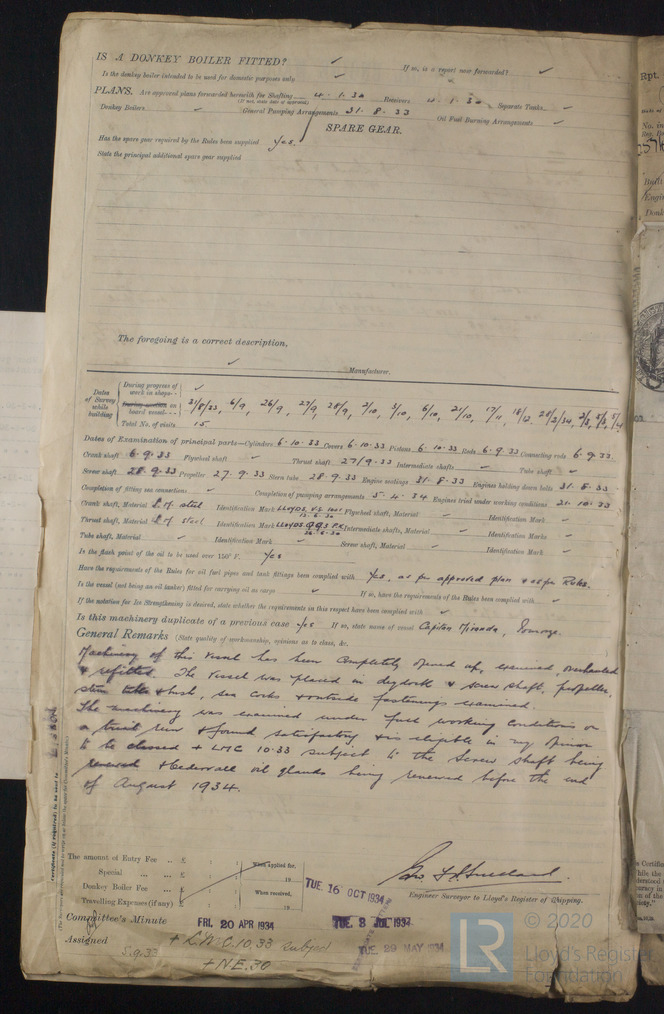 IS A DONKEY BOILER FITTED? ✓ If so, is a report now forwarded? ✓
Is the donkey boiler intended to be used for domestic purposes only ✓
PLANS. Are approved plans forwarded herewith for Shafting 4.1.30 Receivers 4.1.30 Separate Tanks ✓
(If not, state date of approval)
Donkey Boilers ✓ General Pumping Arrangements 31.8.33 Oil Fuel Burning Arrangements ✓
SPARE GEAR.
Has the spare gear required by the Rules been supplied Yes.
State the principal additional spare gear supplied
The foregoing is a correct description,
✓ Manufacturer.
Dates of Survey while building
During progress of work in shops - - ✓
During erection on board vessel - - - 31/8/33, 6/9, 26/9, 27/9, 28/9, 2/10, 3/10, 6/10, 21/10, 17/11, 18/12,
Total No. of visits 15
Dates of Examination of principal parts—Cylinders 6.10.33 Covers 6.10.33 Pistons 6.10.33 Rods 6.9.33 Connecting rods 6.9.33.
Crank shaft 6.9.33 Flywheel shaft ✓ Thrust shaft 27/9.33 Intermediate shafts ✓ Tube shaft ✓
Screw shaft 28.9.33 Propeller 27.9.33 Stern tube 28.9.33 Engine seatings 31.8.33 Engines holding down bolts 31.8.33
Completion of fitting sea connections ✓ Completion of pumping arrangements 5.4.34 Engines tried under working conditions 21.10.33
Crank shaft, Material of steel Identification Mark LLOYDS Flywheel shaft, Material ✓ Identification Mark ✓
Thrust shaft, Material of steel Identification Mark LLOYDS 993 Intermediate shafts, Material ✓ Identification Marks ✓
Tube shaft, Material ✓ Identification Mark ✓ Screw shaft, Material ✓ Identification Mark ✓
Is the flash point of the oil to be used over 150° F. Yes
Have the requirements of the Rules for oil fuel pipes and tank fittings been complied with Yes, as per approved plan & as per Rules.
Is the vessel (not being an oil tanker) fitted for carrying oil as cargo ✓ If so, have the requirements of the Rules been complied with ✓
If the notation for Ice Strengthening is desired, state whether the requirements in this respect have been complied with ✓
Is this machinery duplicate of a previous case Yes If so, state name of vessel Capitan Miranda,
General Remarks (State quality of workmanship, opinions as to class, &c.
Machinery of this vessel has been completely opened up, examined, overhauled
& refitted. The vessel was placed in drydock & screw shaft, propeller,
stern tube & bush, sea cocks & outside fastenings examined.
The machinery was examined under full working conditions on
a trial run & found satisfactory & is eligible in my opinion
to be classed + LMC 10.33 subject to the screw shaft being
renewed & Cedervall oil glands being renewed before the end
of August 1934.
The amount of Entry Fee .. £ : : When applied for,
Special .. .. £ : : 19
Donkey Boiler Fee .. £ : : When received,
Travelling Expenses (if any) £ : : 19
TUE. 16 OCT 1934
Engineer Surveyor to Lloyd's Register of Shipping.
Committee's Minute FRI. 20 APR 1934 TUE. 3 JUL 1934
Assigned + L.M.C. 10.33 subject TUE. 29 MAY 1934
5.9.33
+ N.E. 30
LR
© 2020
Lloyd's Register
Foundation
Rpt.